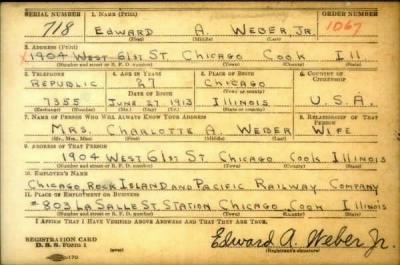 SERIAL NUMBER 1. NAME (Print) ORDER NUMBER
718 EDWARD A. WEBER, JR. 1067
(First) (Middle) (Last)
2. ADDRESS (Print)
X 1904 WEST 61ST ST. CHICAGO COOK ILL
(Number and street or R. F. D. number) (Town) (County) (State)
3. TELEPHONE 4. AGE IN YEARS 5. PLACE OF BIRTH 6. COUNTRY OF CITIZENSHIP
REPUBLIC 27 CHICAGO
DATE OF BIRTH (Town or county)
7355 JUNE 27 1913 ILLINOIS U.S.A.
(Exchange) (No.) (Mo.) (Day) (Yr.) (State or country)
7. NAME OF PERSON WHO WILL ALWAYS KNOW YOUR ADDRESS 8. RELATIONSHIP OF THAT PERSON
MRS. CHARLOTTE A. WEBER WIFE
(Mr., Mrs., Miss) (First) (Middle) (Last)
9. ADDRESS OF THAT PERSON
1904 WEST 61ST ST. CHICAGO COOK ILLINOIS
(Number and street or R. F. D. number) (Town) (County) (State)
10. EMPLOYER'S NAME
CHICAGO, ROCK ISLAND AND PACIFIC RAILWAY COMPANY
11. PLACE OF EMPLOYMENT OR BUSINESS
#803 LA SALLE ST. STATION CHICAGO COOK ILLINOIS
(Number and street or R. F. D. number) (Town) (County) (State)
I AFFIRM THAT I HAVE VERIFIED ABOVE ANSWERS AND THAT THEY ARE TRUE.
REGISTRATION CARD
D. S. S. Form 1 (over) Edward A. Weber Jr.